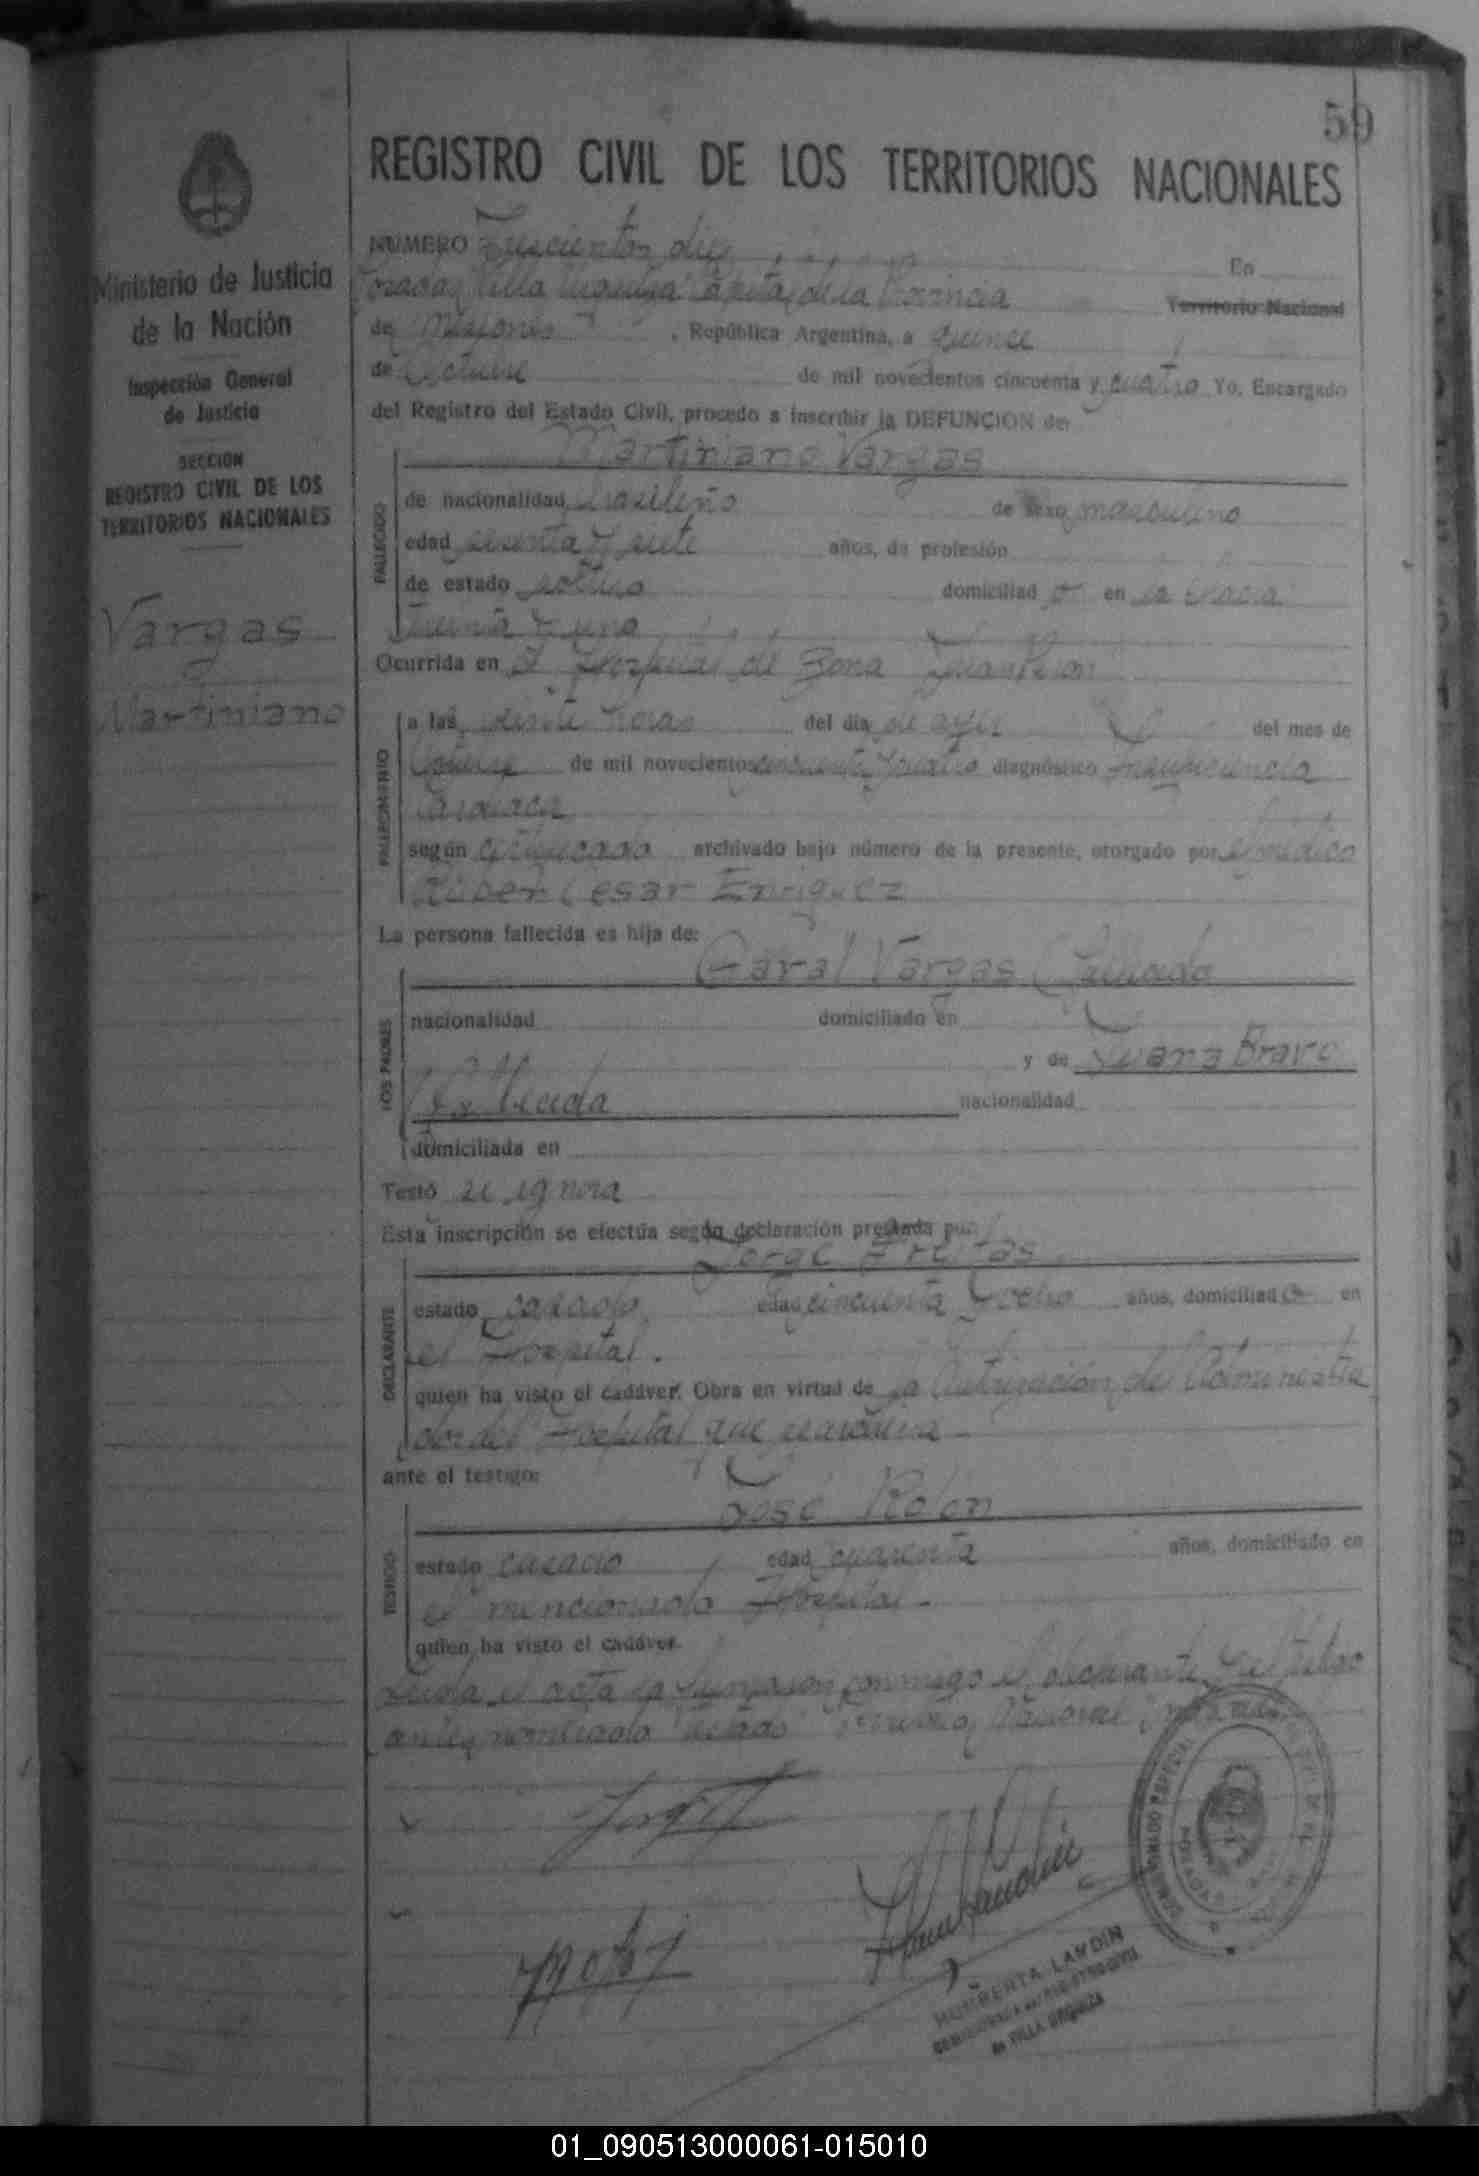 59
REGISTRO CIVIL DE LOS TERRITORIOS NACIONALES
Ministerio de Justicia
de la Nación
Inspección General
de Justicia
SECCION
REGISTRO CIVIL DE LOS
TERRITORIOS NACIONALES
Vargas
Martiniano
NUMERO Trescientos diez En
Posadas Villa Urquiza Capital de la Provincia Territorio Nacional
de Misiones , República Argentina, a quince
de Octubre de mil novecientos cincuenta y cuatro Yo, Encargado
del Registro del Estado Civil, procedo a inscribir la DEFUNCION de:
Martiniano Vargas
FALLECIDO
de nacionalidad brasileño de sexo masculino
edad y siete años, de profesión
de estado soltero domiciliad o en la chacra
Treinta y uno
Ocurrida en el Hospital de Zona Juan Peron
FALLECIMIENTO
a las veinte horas del día de ayer del mes de
Octubre de mil novecientos cincuenta y cuatro diagnóstico Insuficiencia
Cardiaca
según certificado archivado bajo número de la presente, otorgado por el médico
Ruben Cesar Enriquez
La persona fallecida es hija de:
Vargas fallecido
LOS PADRES
nacionalidad domiciliado en
y de Juana Bravo
fallecida nacionalidad
domiciliada en
Testó se ignora
Esta inscripción se efectúa según declaración prestada por:
Jorge Freitas
DECLARANTE
estado casado edad cincuenta y ocho años, domiciliad o en
el Hospital.
quien ha visto el cadáver. Obra en virtud de la Autorización del Administra
dor del Hospital que se archiva
ante el testigo:
José Rolon
TESTIGO
estado casado edad cuarenta años, domiciliado en
el mencionado Hospital.
quien ha visto el cadáver.
Leida el acta la firmaron conmigo el declarante y el testigo
antes nombrado Testado "Territorio Nacional",
HUMBERTA LANDIN
de VILLA URQUIZA
01_090513000061-015010